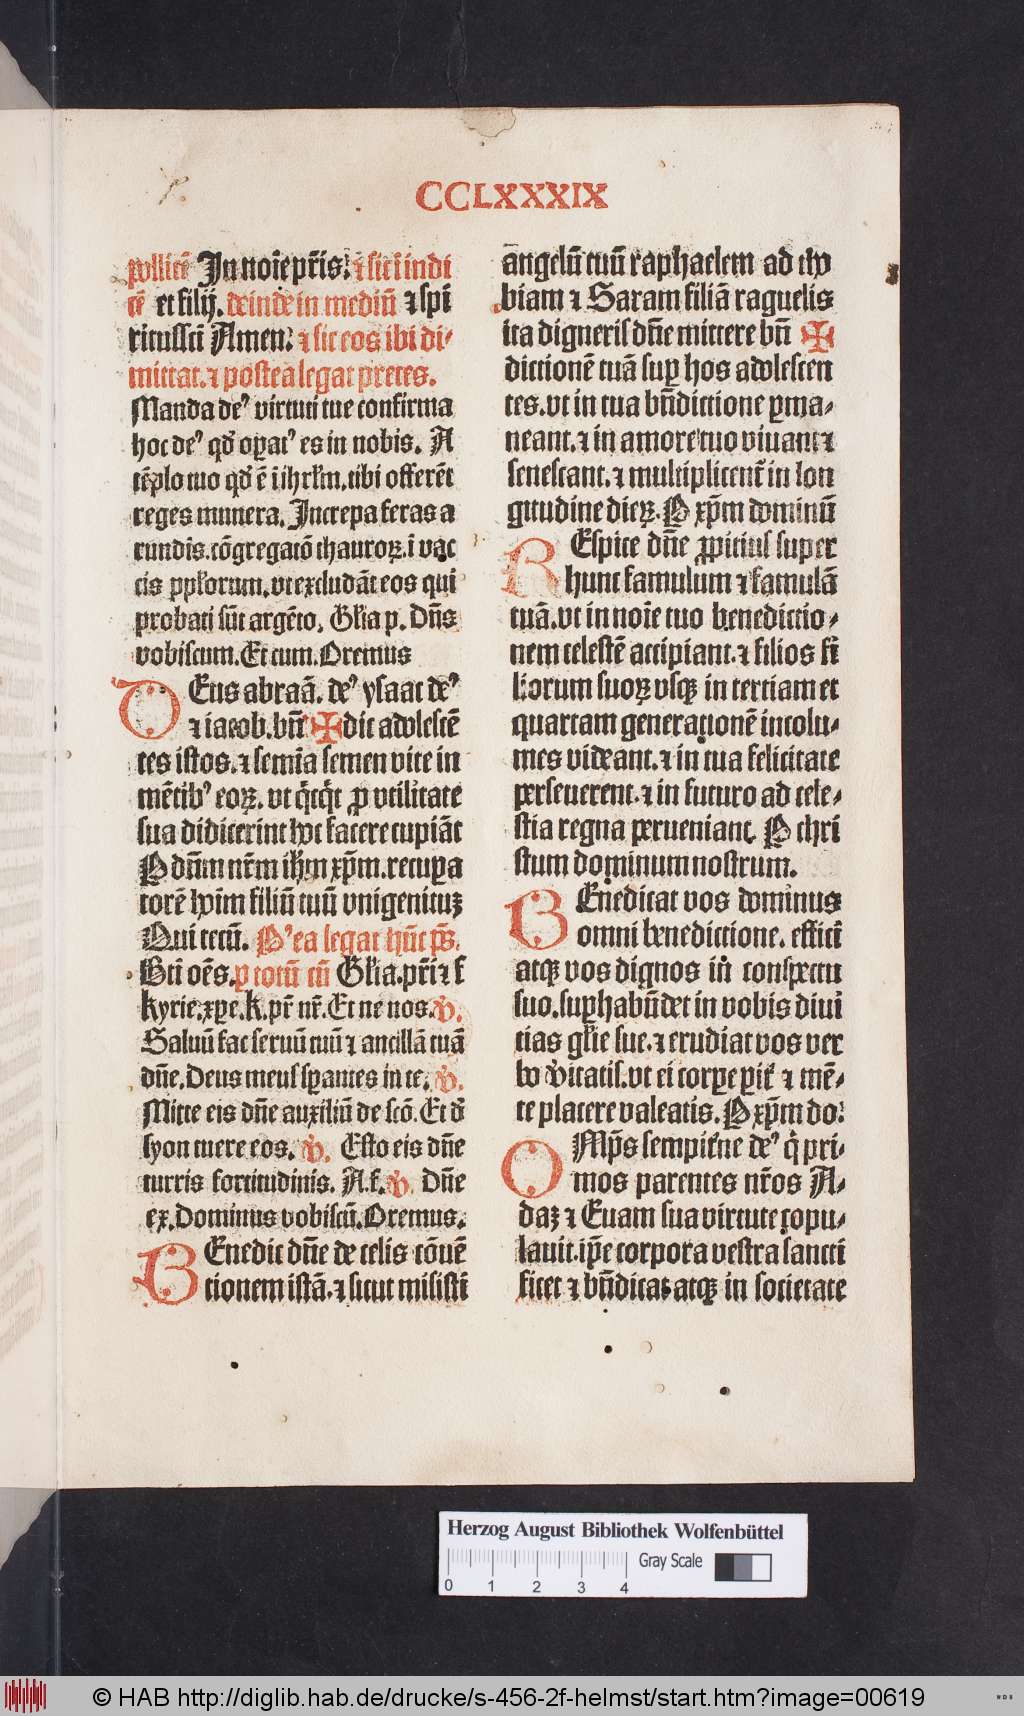 CCLXXXIX
pollicē In noīe pr̄is. ⁊ sic ī indi
cē et filij. deinde in mediū ⁊ spi
ritussc̄i Amen. ⁊ sic eos ibi di⸗
mittat. ⁊ postea legat preces.
Manda deꝰ virtuti tue confirma
hoc deꝰ qd̓ oꝑatꝰ es in nobis. A
tēplo tuo qd̓ ē ī ihrłm. tibi offerēt
reges munera. Increpa feras a
rundīs. cōgregatō thauroꝝ. ī vac
cis ppłorum. vt excludāt eos qui
probati sūt argēto. Głia p. Dn̄s
vobiscum. Et cum. Oremus
DEus abraā. deꝰ ysaac deꝰ
⁊ iacob. bn̄ ✠ dic adolescē
tes istos. ⁊ semīa semen vite in
mētibꝰ eoꝝ. vt q̄tq̄t ꝓ vtilitate
sua didicerint hoc facere cupiāt
P dn̄m nr̄m ih̄m xp̄m. recuꝑa
torē hoīm filiū tuū vnigenituʒ
Qui tecū. Pꝰea legat hūc ps̄.
Bti oēs. ꝑ totū cū Głia. pr̄i ⁊ f
kyrie. xp̄e. k. pr̄ nr̄. Et ne nos. ꝟ.
Saluū fac seruū tuū ⁊ ancillā tuā
dn̄e. Deus meus sꝑantes in te. ꝟ.
Mitte eis dn̄e auxiliū de scō. Et d̓
syon tuere eos. ꝟ. Esto eis dn̄e
turris fortitudinis. A f. ꝟ. Dn̄e
ex. Dominus vobiscū. Oremus.
BEnedic dn̄e de celis cōuē
tionem istā. ⁊ sicut misisti
angelū tuū raphaelem ad tho
biam ⁊ Saram filiā raguelis
ita digneris dn̄e mittere bn̄ ✠
dictionē tuā suꝑ hos adolescen
tes. vt in tua bn̄dictione ꝑma⸗
neant. ⁊ in amore tuo viuant ⁊
senescant. ⁊ multiplicent̄ in lon
gitudine dieꝝ. P xp̄m dominū
REspice dn̄e ꝓpicius super
hunc famulum ⁊ famulā
tuā. vt in noīe tuo benedictio⸗
nem celestē accipiant. ⁊ filios fi
liorum suoꝝ vsqꝫ in terciam et
quartam generationē incolu⸗
mes videant. ⁊ in tua felicitate
perseuerent. ⁊ in futuro ad cele⸗
stia regna perueniant. P chri
stum dominum nostrum.
BEnedicat vos dominus
omni benedictione. effici
atqꝫ vos dignos in conspectu
suo. suꝑhabūdet in vobis diui
tias głie sue. ⁊ erudiat vos ver
bo ꝟitatis. vt ei corꝑe ꝑit̓ ⁊ mē⸗
te placere valeatis. P xp̄m do.
OMp̄s sempit̓ne deꝰ q̓ pri⸗
mos parentes nr̄os A⸗
daʒ ⁊ Euam sua virtute copu⸗
lauit. ip̄e corpora vestra sancti
ficet ⁊ bn̄dicat atqꝫ in societate
Herzog August Bibliothek Wolfenbüttel
Gray Scale
0 1 2 3 4
© HAB http://diglib.hab.de/drucke/s-456-2f-helmst/start.htm?image=00619